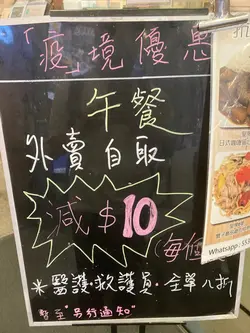 「疫」境優惠
午餐
外賣自取
減$10
(每個
*醫護.救護員.全單八折
暫至"另行通知"
Whatsapp: 553